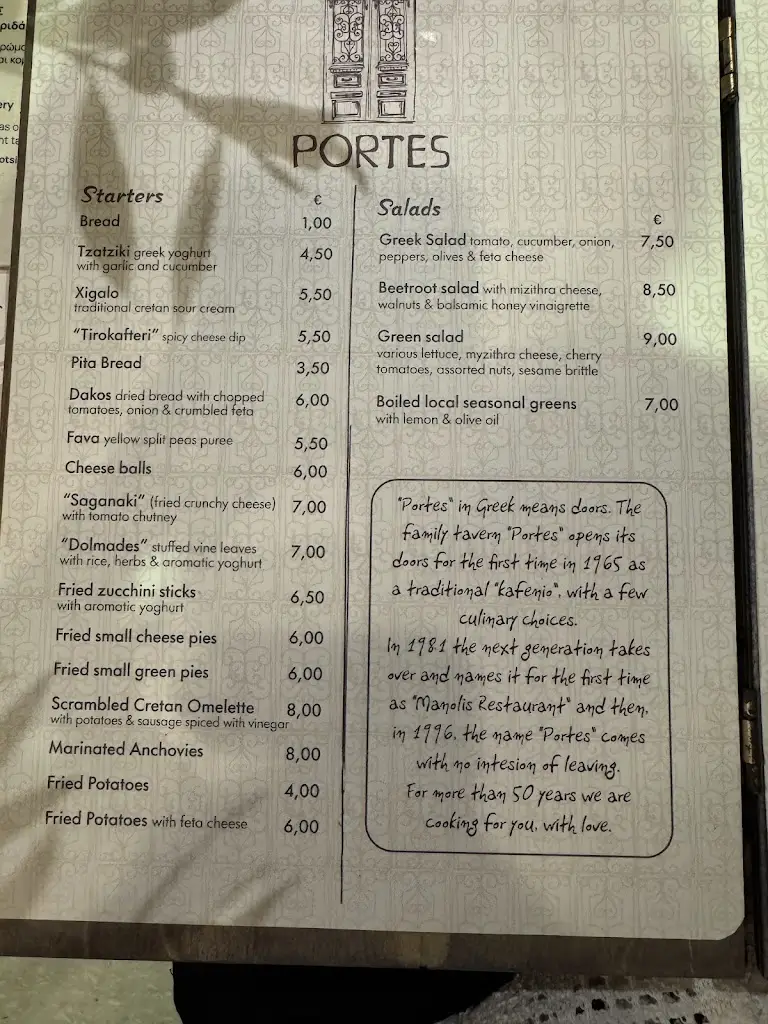 ριδά
ery
PORTES
Starters
€
Bread 1,00
Tzatziki greek yoghurt 4,50
with garlic and cucumber
Xigalo 5,50
traditional cretan sour cream
"Tirokafteri" spicy cheese dip 5,50
Pita Bread 3,50
Dakos dried bread with chopped 6,00
tomatoes, onion & crumbled feta
Fava yellow split peas puree 5,50
Cheese balls 6,00
"Saganaki" (fried crunchy cheese) 7,00
with tomato chutney
"Dolmades" stuffed vine leaves 7,00
with rice, herbs & aromatic yoghurt
Fried zucchini sticks 6,50
with aromatic yoghurt
Fried small cheese pies 6,00
Fried small green pies 6,00
Scrambled Cretan Omelette 8,00
with potatoes & sausage spiced with vinegar
Marinated Anchovies 8,00
Fried Potatoes 4,00
Fried Potatoes with feta cheese 6,00
Salads
€
Greek Salad tomato, cucumber, onion, 7,50
peppers, olives & feta cheese
Beetroot salad with mizithra cheese, 8,50
walnuts & balsamic honey vinaigrette
Green salad 9,00
various lettuce, myzithra cheese, cherry
tomatoes, assorted nuts, sesame brittle
Boiled local seasonal greens 7,00
with lemon & olive oil
"Portes" in Greek means doors. The
family tavern "Portes" opens its
doors for the first time in 1965 as
a traditional "kafenio", with a few
culinary choices.
In 1981 the next generation takes
over and names it for the first time
as "Manolis Restaurant" and then,
in 1996, the name "Portes" comes
with no intesion of leaving.
For more than 50 years we are
cooking for you, with love.